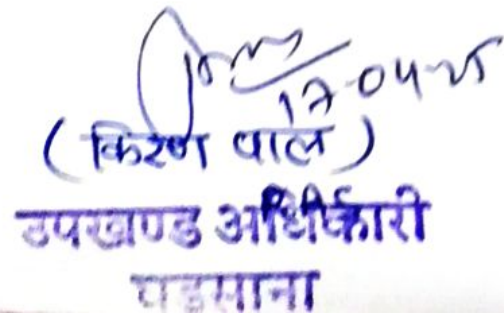 17-04-25
(किरण पाल)
उपखण्ड अधिकारी
घड़साना